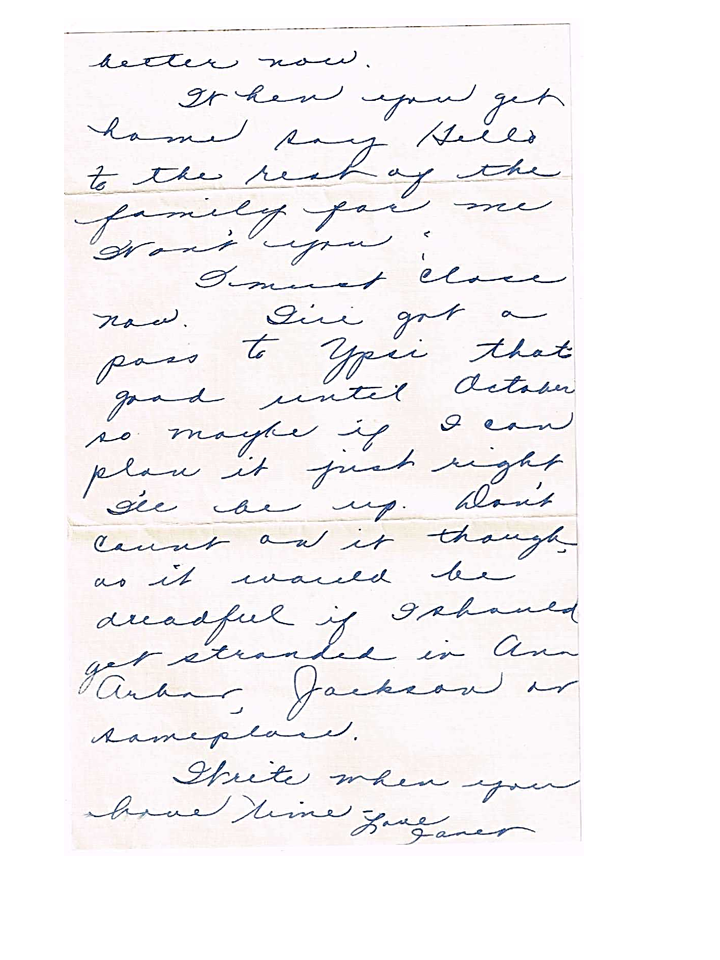 better now.
When you get
home say Hello
to the rest of the
family for me
Won't you.
I must close
now. I've got a
pass to Ypsi that
good until October
so maybe if I can
plan it just right
I'll be up. Don't
count on it though,
as it would be
dreadful if I should
get stranded in Ann
Arbor, Jackson or
someplace.
Write when you
have time -
Love
Janet